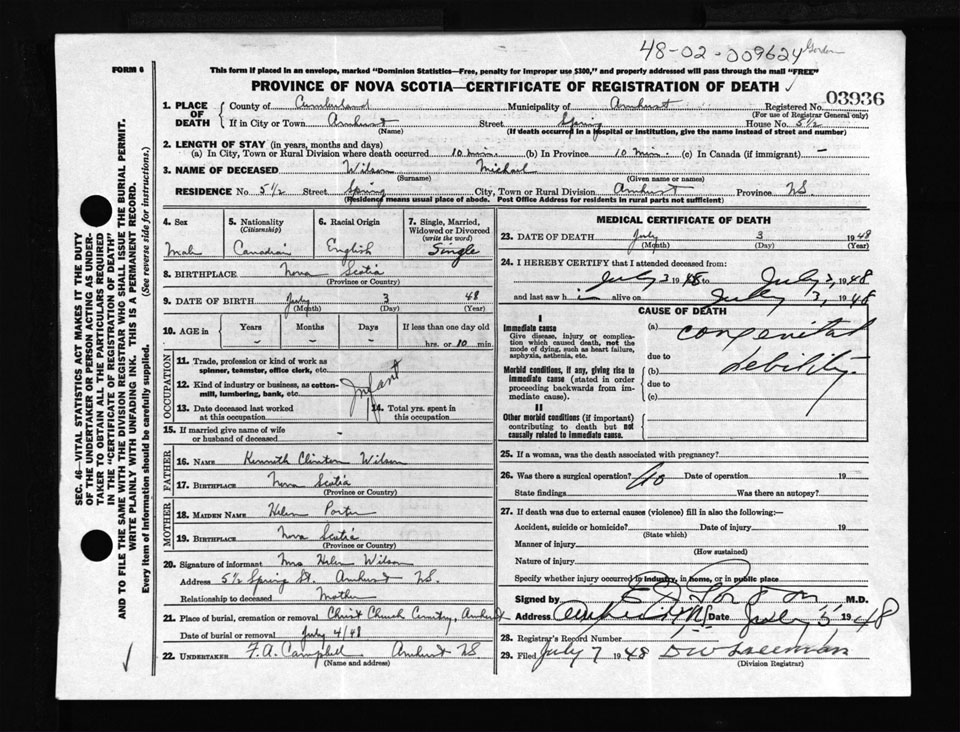 48-02-009624 Gordon
FORM 6
This form if placed in an envelope, marked "Dominion Statistics—Free, penalty for improper use $300," and properly addressed will pass through the mail "FREE"
PROVINCE OF NOVA SCOTIA—CERTIFICATE OF REGISTRATION OF DEATH
1. PLACE OF DEATH { County of Cumberland Municipality of Amherst Registered No. 03936
(For use of Registrar General only)
If in City or Town Amherst Street Spring House No. 5½
(Name) (If death occurred in a hospital or institution, give the name instead of street and number)
2. LENGTH OF STAY (in years, months and days)
(a) In City, Town or Rural Division where death occurred 10 min. (b) In Province 10 min. (c) In Canada (if immigrant) —
3. NAME OF DECEASED Wilson Michael
(Surname) (Given name or names)
RESIDENCE No 5½ Street Spring City, Town or Rural Division Amherst Province NS
(Residence means usual place of abode. Post Office Address for residents in rural parts not sufficient)
4. Sex 5. Nationality (Citizenship) 6. Racial Origin 7. Single, Married, Widowed or Divorced (write the word)
Male Canadian English Single
8. BIRTHPLACE Nova Scotia
(Province or Country)
9. DATE OF BIRTH July 3 48
(Month) (Day) (Year)
10. AGE in Years Months Days If less than one day old
– – – hrs. or 10 min.
OCCUPATION
11. Trade, profession or kind of work as spinner, teamster, office clerk, etc.
12. Kind of industry or business, as cotton-mill, lumbering, bank, etc.
Infant
13. Date deceased last worked at this occupation 14. Total yrs. spent in this occupation
15. If married give name of wife or husband of deceased —
FATHER
16. NAME Kenneth Clinton Wilson
17. BIRTHPLACE Nova Scotia
(Province or Country)
MOTHER
18. MAIDEN NAME Helen Porter
19. BIRTHPLACE Nova Scotia
(Province or Country)
20. Signature of informant Mrs Helen Wilson
Address 5½ Spring St. Amherst NS.
Relationship to deceased Mother
21. Place of burial, cremation or removal Christ Church Cemetery, Amherst
Date of burial or removal July 4/48
22. UNDERTAKER F.A. Campbell Amherst NS
(Name and address)
MEDICAL CERTIFICATE OF DEATH
23. DATE OF DEATH July 3 1948
(Month) (Day) (Year)
24. I HEREBY CERTIFY that I attended deceased from:
July 3 1948 to July 3, 1948
and last saw him alive on July 3, 1948
CAUSE OF DEATH
I
Immediate cause
Give disease, injury or complication which caused death, not the mode of dying, such as heart failure, asphyxia, asthenia, etc.
(a) congenital
due to
Morbid conditions, if any, giving rise to immediate cause (stated in order proceeding backwards from immediate cause).
(b) debility.
due to
(c)
II
Other morbid conditions (if important) contributing to death but not causally related to immediate cause.
25. If a woman, was the death associated with pregnancy?
26. Was there a surgical operation? No Date of operation 19
State findings Was there an autopsy?
27. If death was due to external causes (violence) fill in also the following:—
Accident, suicide or homicide? Date of injury 19
(State which)
Manner of injury
(How sustained)
Nature of injury
Specify whether injury occurred in industry, in home, or in public place
Signed by M.D.
Address Amherst NS Date July 5 1948
28. Registrar's Record Number
29. Filed July 7 1948
(Division Registrar)
SEC. 46—VITAL STATISTICS ACT MAKES IT THE DUTY
OF THE UNDERTAKER OR PERSON ACTING AS UNDER-
TAKER TO OBTAIN ALL THE PARTICULARS REQUIRED
IN THE "CERTIFICATE OF REGISTRATION OF DEATH"
AND TO FILE THE SAME WITH THE DIVISION REGISTRAR WHO SHALL ISSUE THE BURIAL PERMIT.
WRITE PLAINLY WITH UNFADING INK. THIS IS A PERMANENT RECORD.
Every item of Information should be carefully supplied. (See reverse side for instructions.)